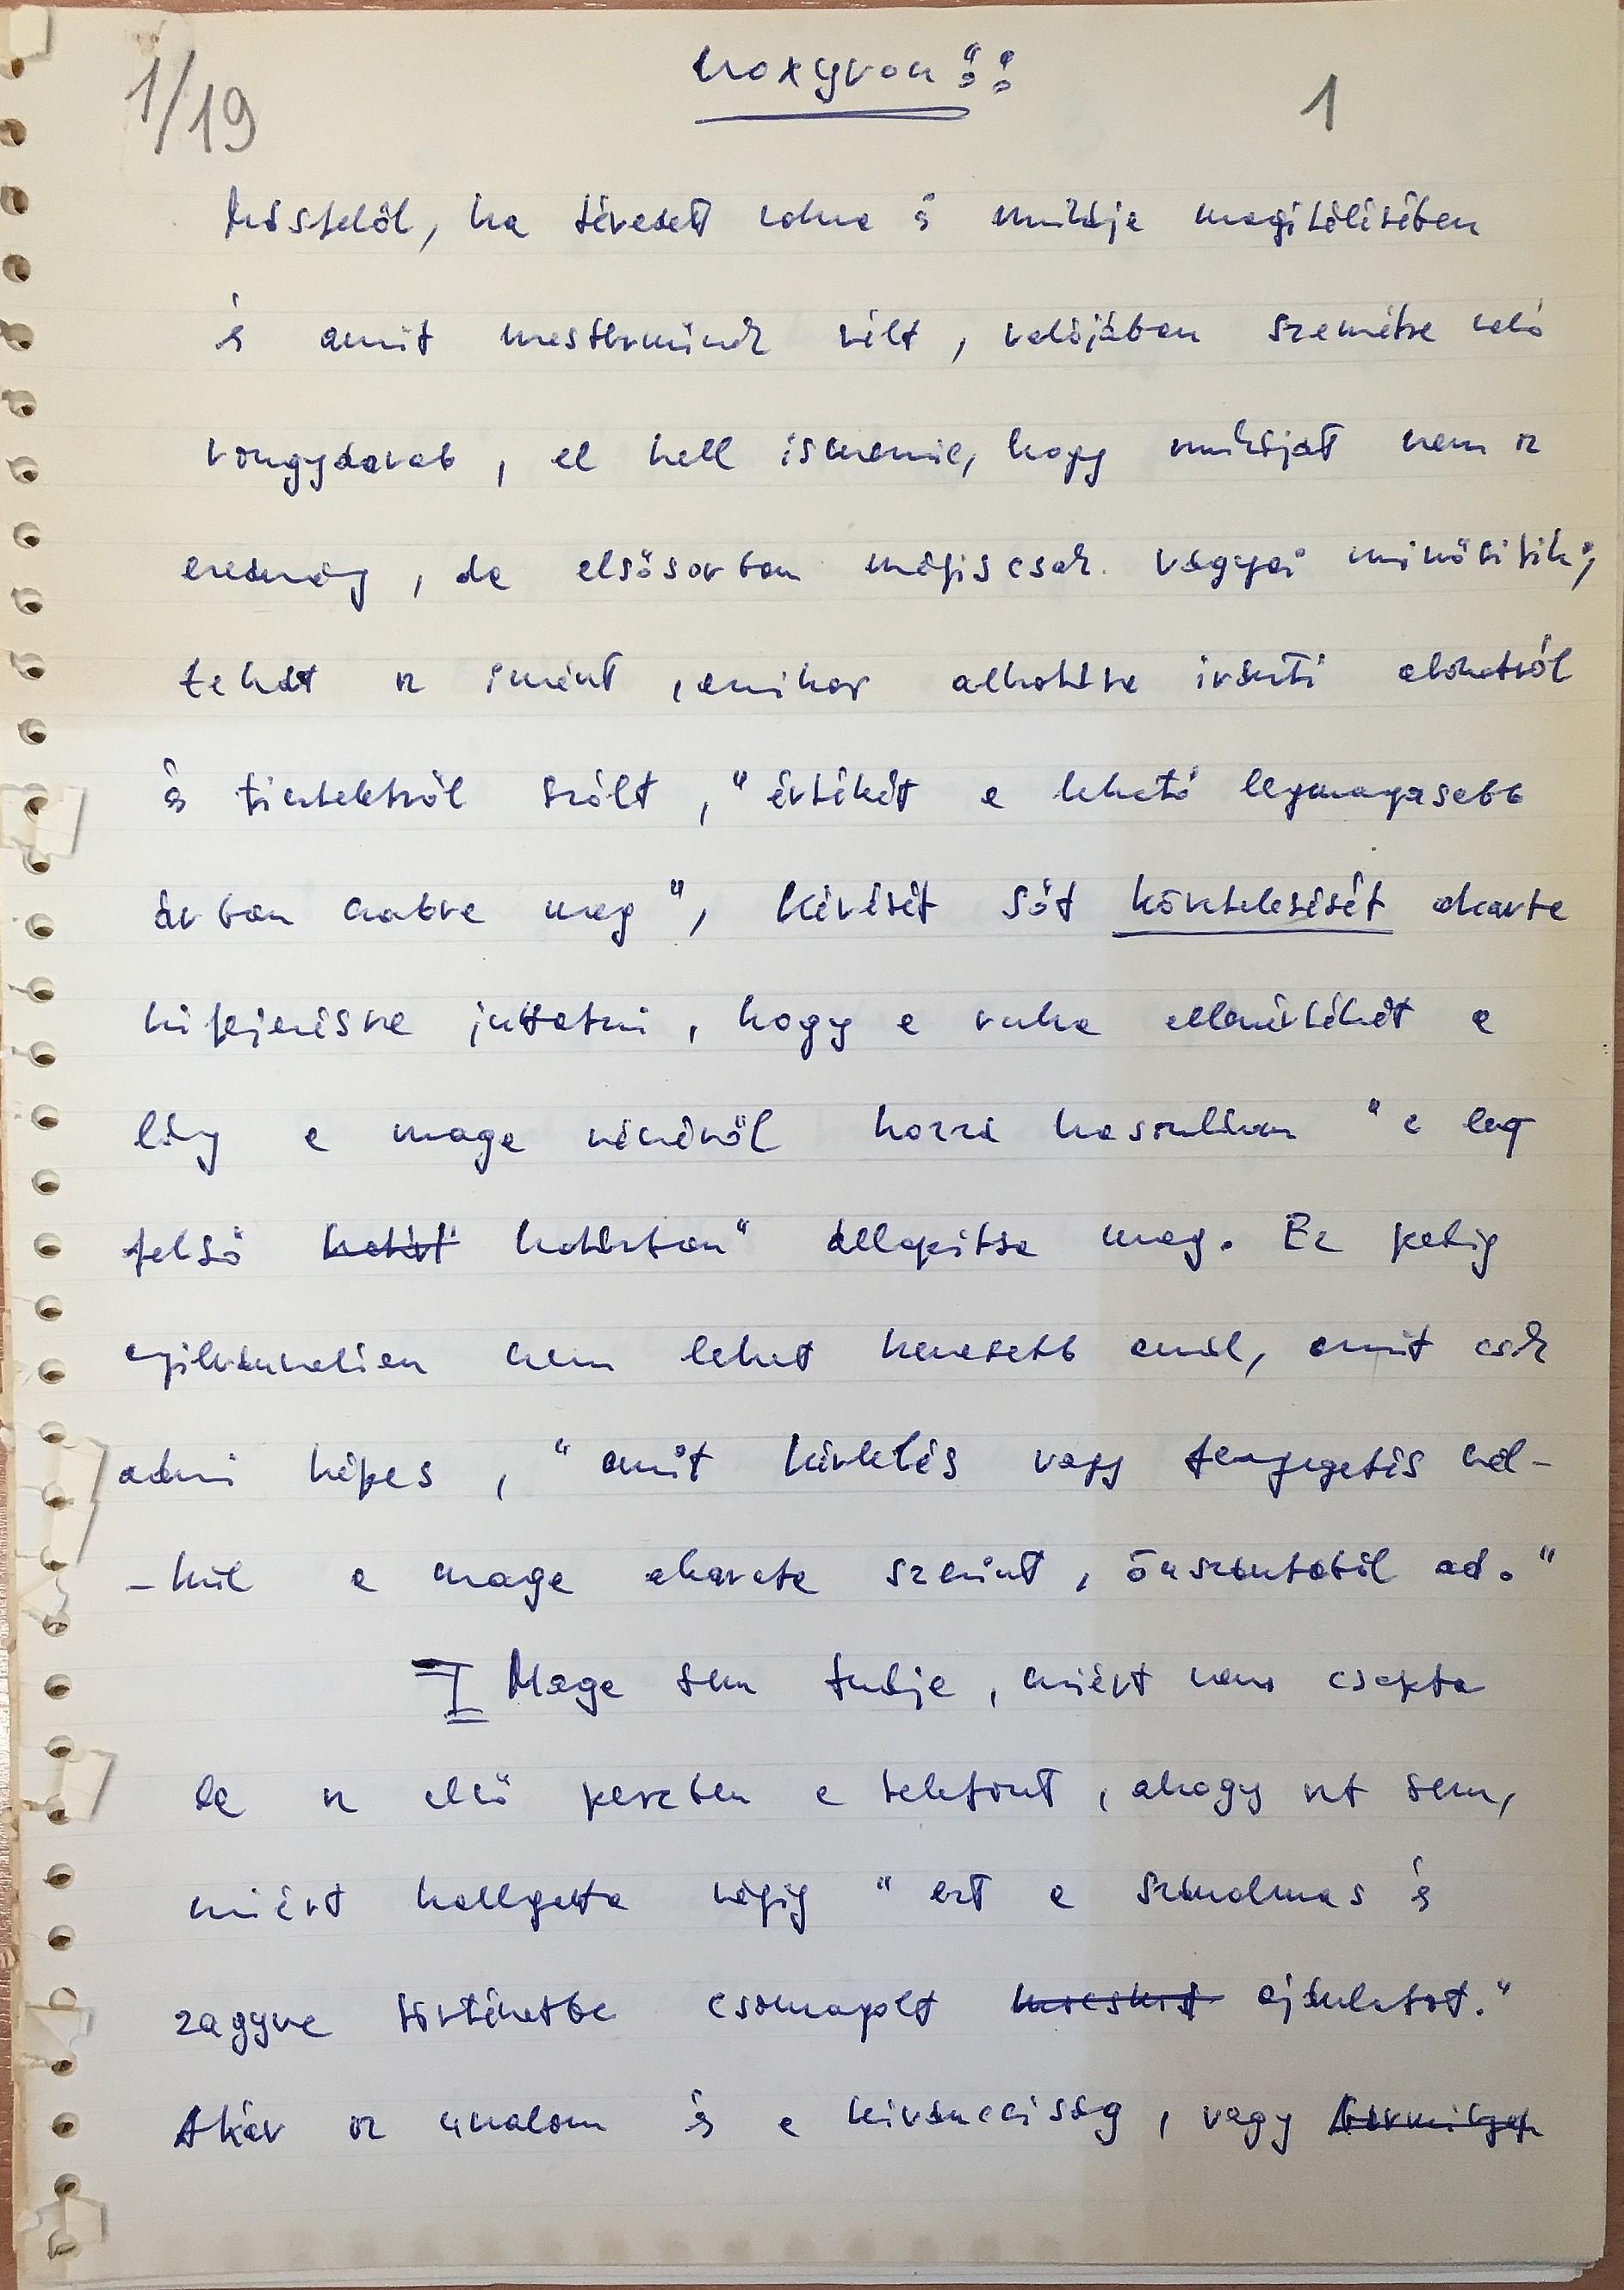 1/19
1
Másfelől, ha tévedett volna is munkája megítélésében
és amit mesterműnek vélt, valójában szemétre való
rongydarab, el kell ismernie, hogy munkáját nem az
eredmény, de elsősorban mégiscsak vágyai minősítik;
tehát az imént, amikor alkotása iránti
és tiszteletről szólt, "értékét a lehető legmagasabb
árban szabva meg", kérését sőt követelését akarta
kifejezésre juttatni, hogy a ruha ellenértékét a
lány a maga részéről hozzá hasonlóan "a leg
felső határ határban" állapítsa meg. Ez pedig
nyilvánvalóan nem lehet kevesebb annál, amit csak
adni képes, "amit kérlelés vagy fenyegetés nél-
-kül a maga akarata szerint, önszántából ad."
I Maga sem tudja, miért nem csapta
le az első percben a telefont, ahogy azt sem,
miért hallgatta végig "ezt a szánalmas és
zagyva történetbe csomagolt mocskos ajánlatot."
Akár az unalom és a kíváncsiság, vagy bármilyen